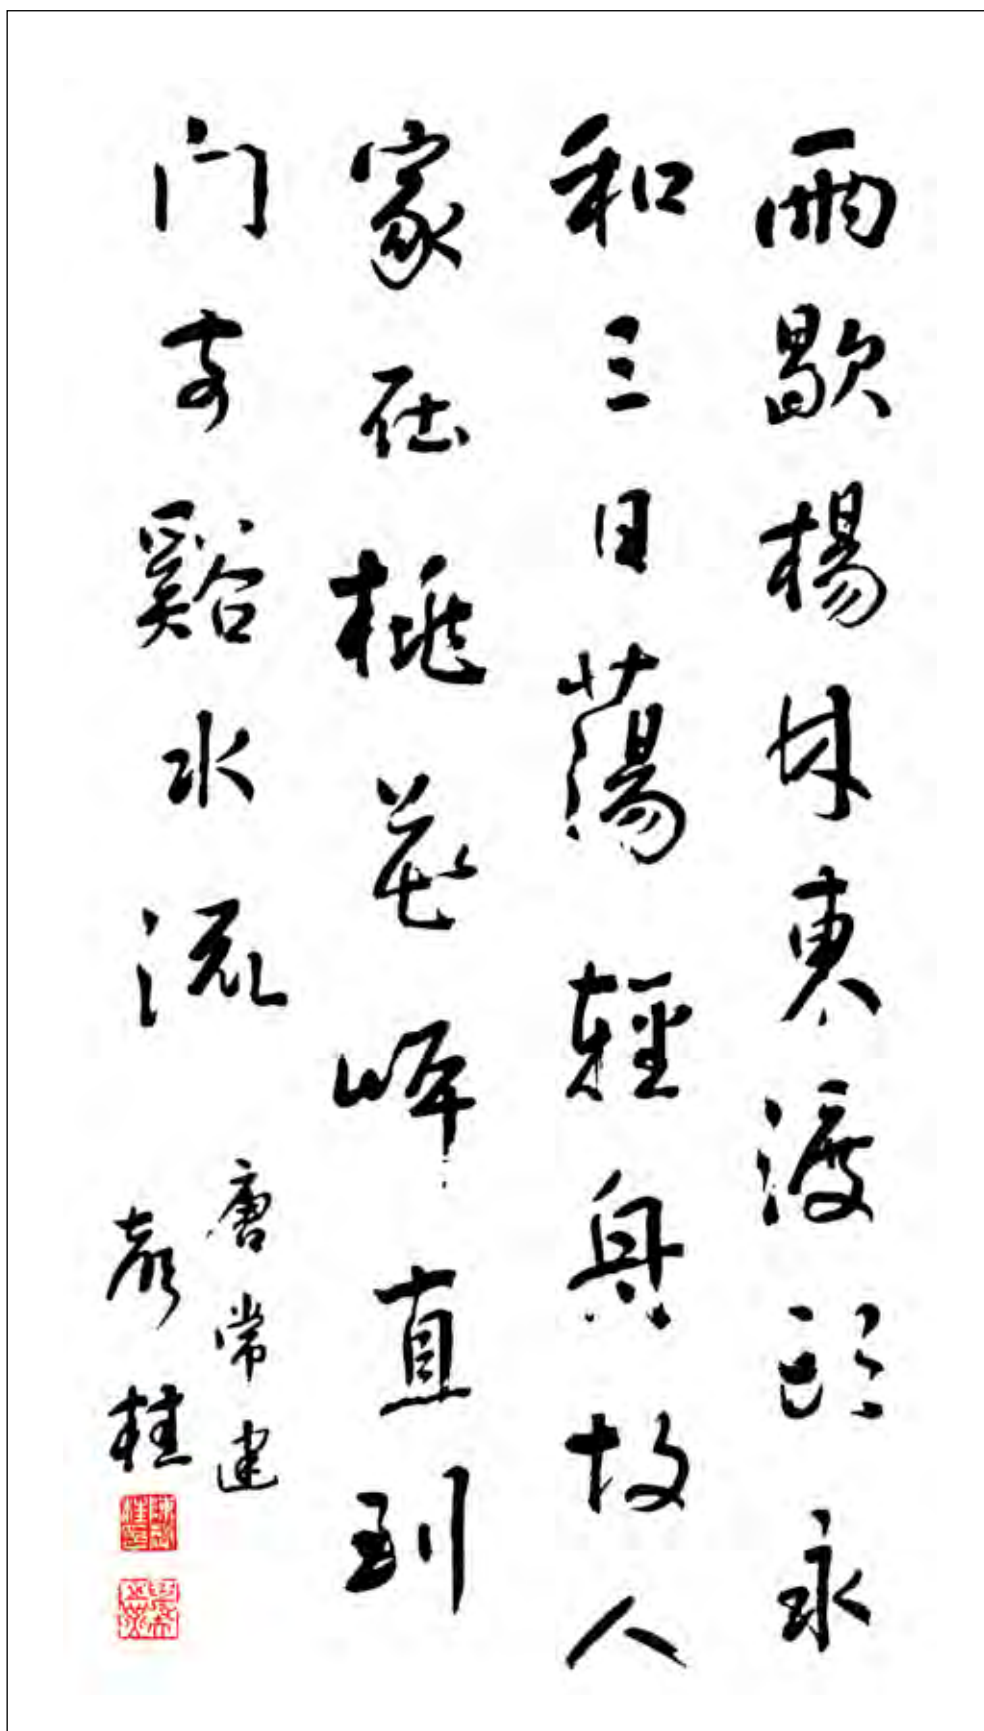 雨歇楊林東渡頭永
和三日蕩輕舟故人
家在桃花岸直到
门前谿水流
唐常建
桂